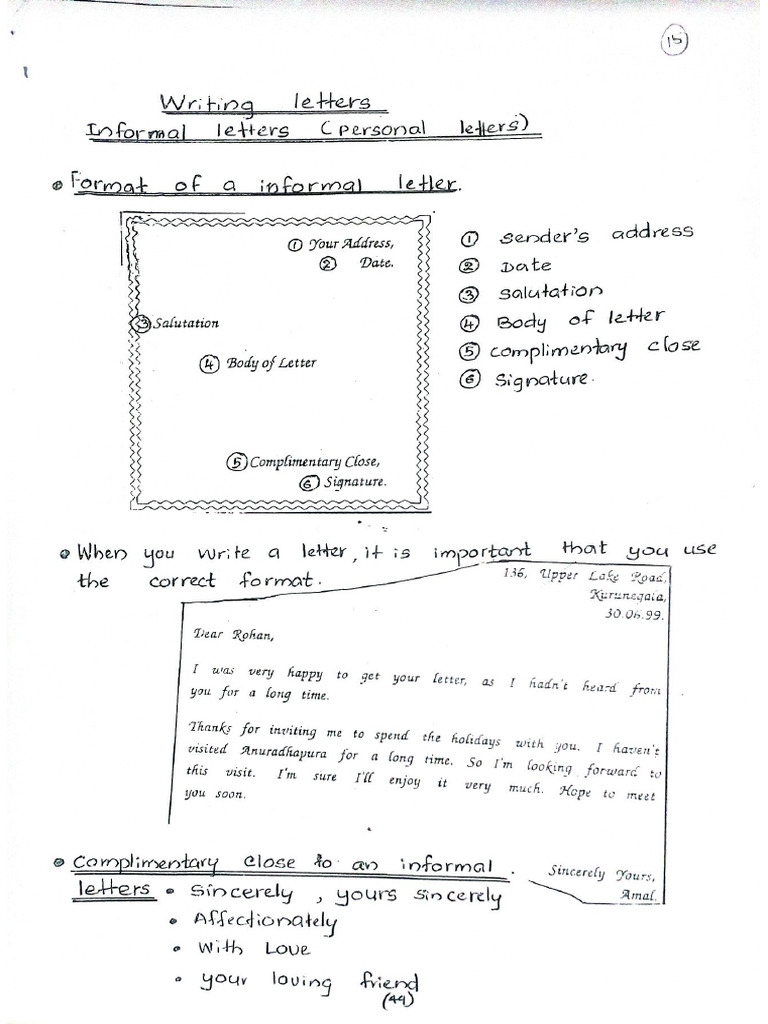 15
Writing letters
Informal letters (personal letters)
Format of a informal letter.
① Your Address,
② Date.
③ Salutation
④ Body of Letter
⑤ Complimentary Close,
⑥ Signature.
① sender's address
② Date
③ salutation
④ Body of letter
⑤ complimentary close
⑥ signature.
When you write a letter, it is important that you use
the correct format.
136, Upper Lake Road,
Kurunegala,
30.06.99.
Dear Rohan,
I was very happy to get your letter, as I hadn't heard from
you for a long time.
Thanks for inviting me to spend the holidays with you. I haven't
visited Anuradhapura for a long time. So I'm looking forward to
this visit. I'm sure I'll enjoy it very much. Hope to meet
you soon.
Sincerely Yours,
Amal.
Complimentary close to an informal.
letters • sincerely, yours sincerely
• Affectionately
• With Love
• your loving friend
(44)